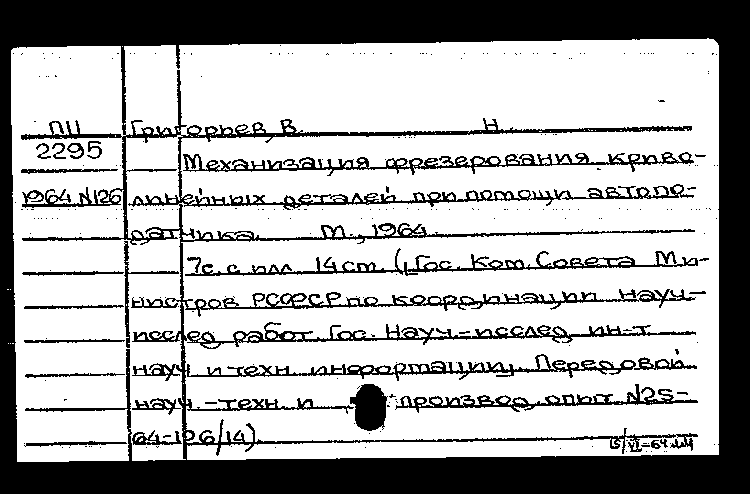 ПП Григорьев, В. Н.
2295 Механизация фрезерования криво-
1964 N126 линейных деталей при помощи автопо-
датчика. М., 1964.
7с. с илл. 14 см. (Гос. Ком. Совета Ми-
нистров РСФСР по координации науч.-
исслед работ. Гос. Науч.-исслед. ин-т
науч. и техн. информации. Передовой
науч.-техн. и производ. опыт. N25-
64-126/14).
15/VI-64 мм